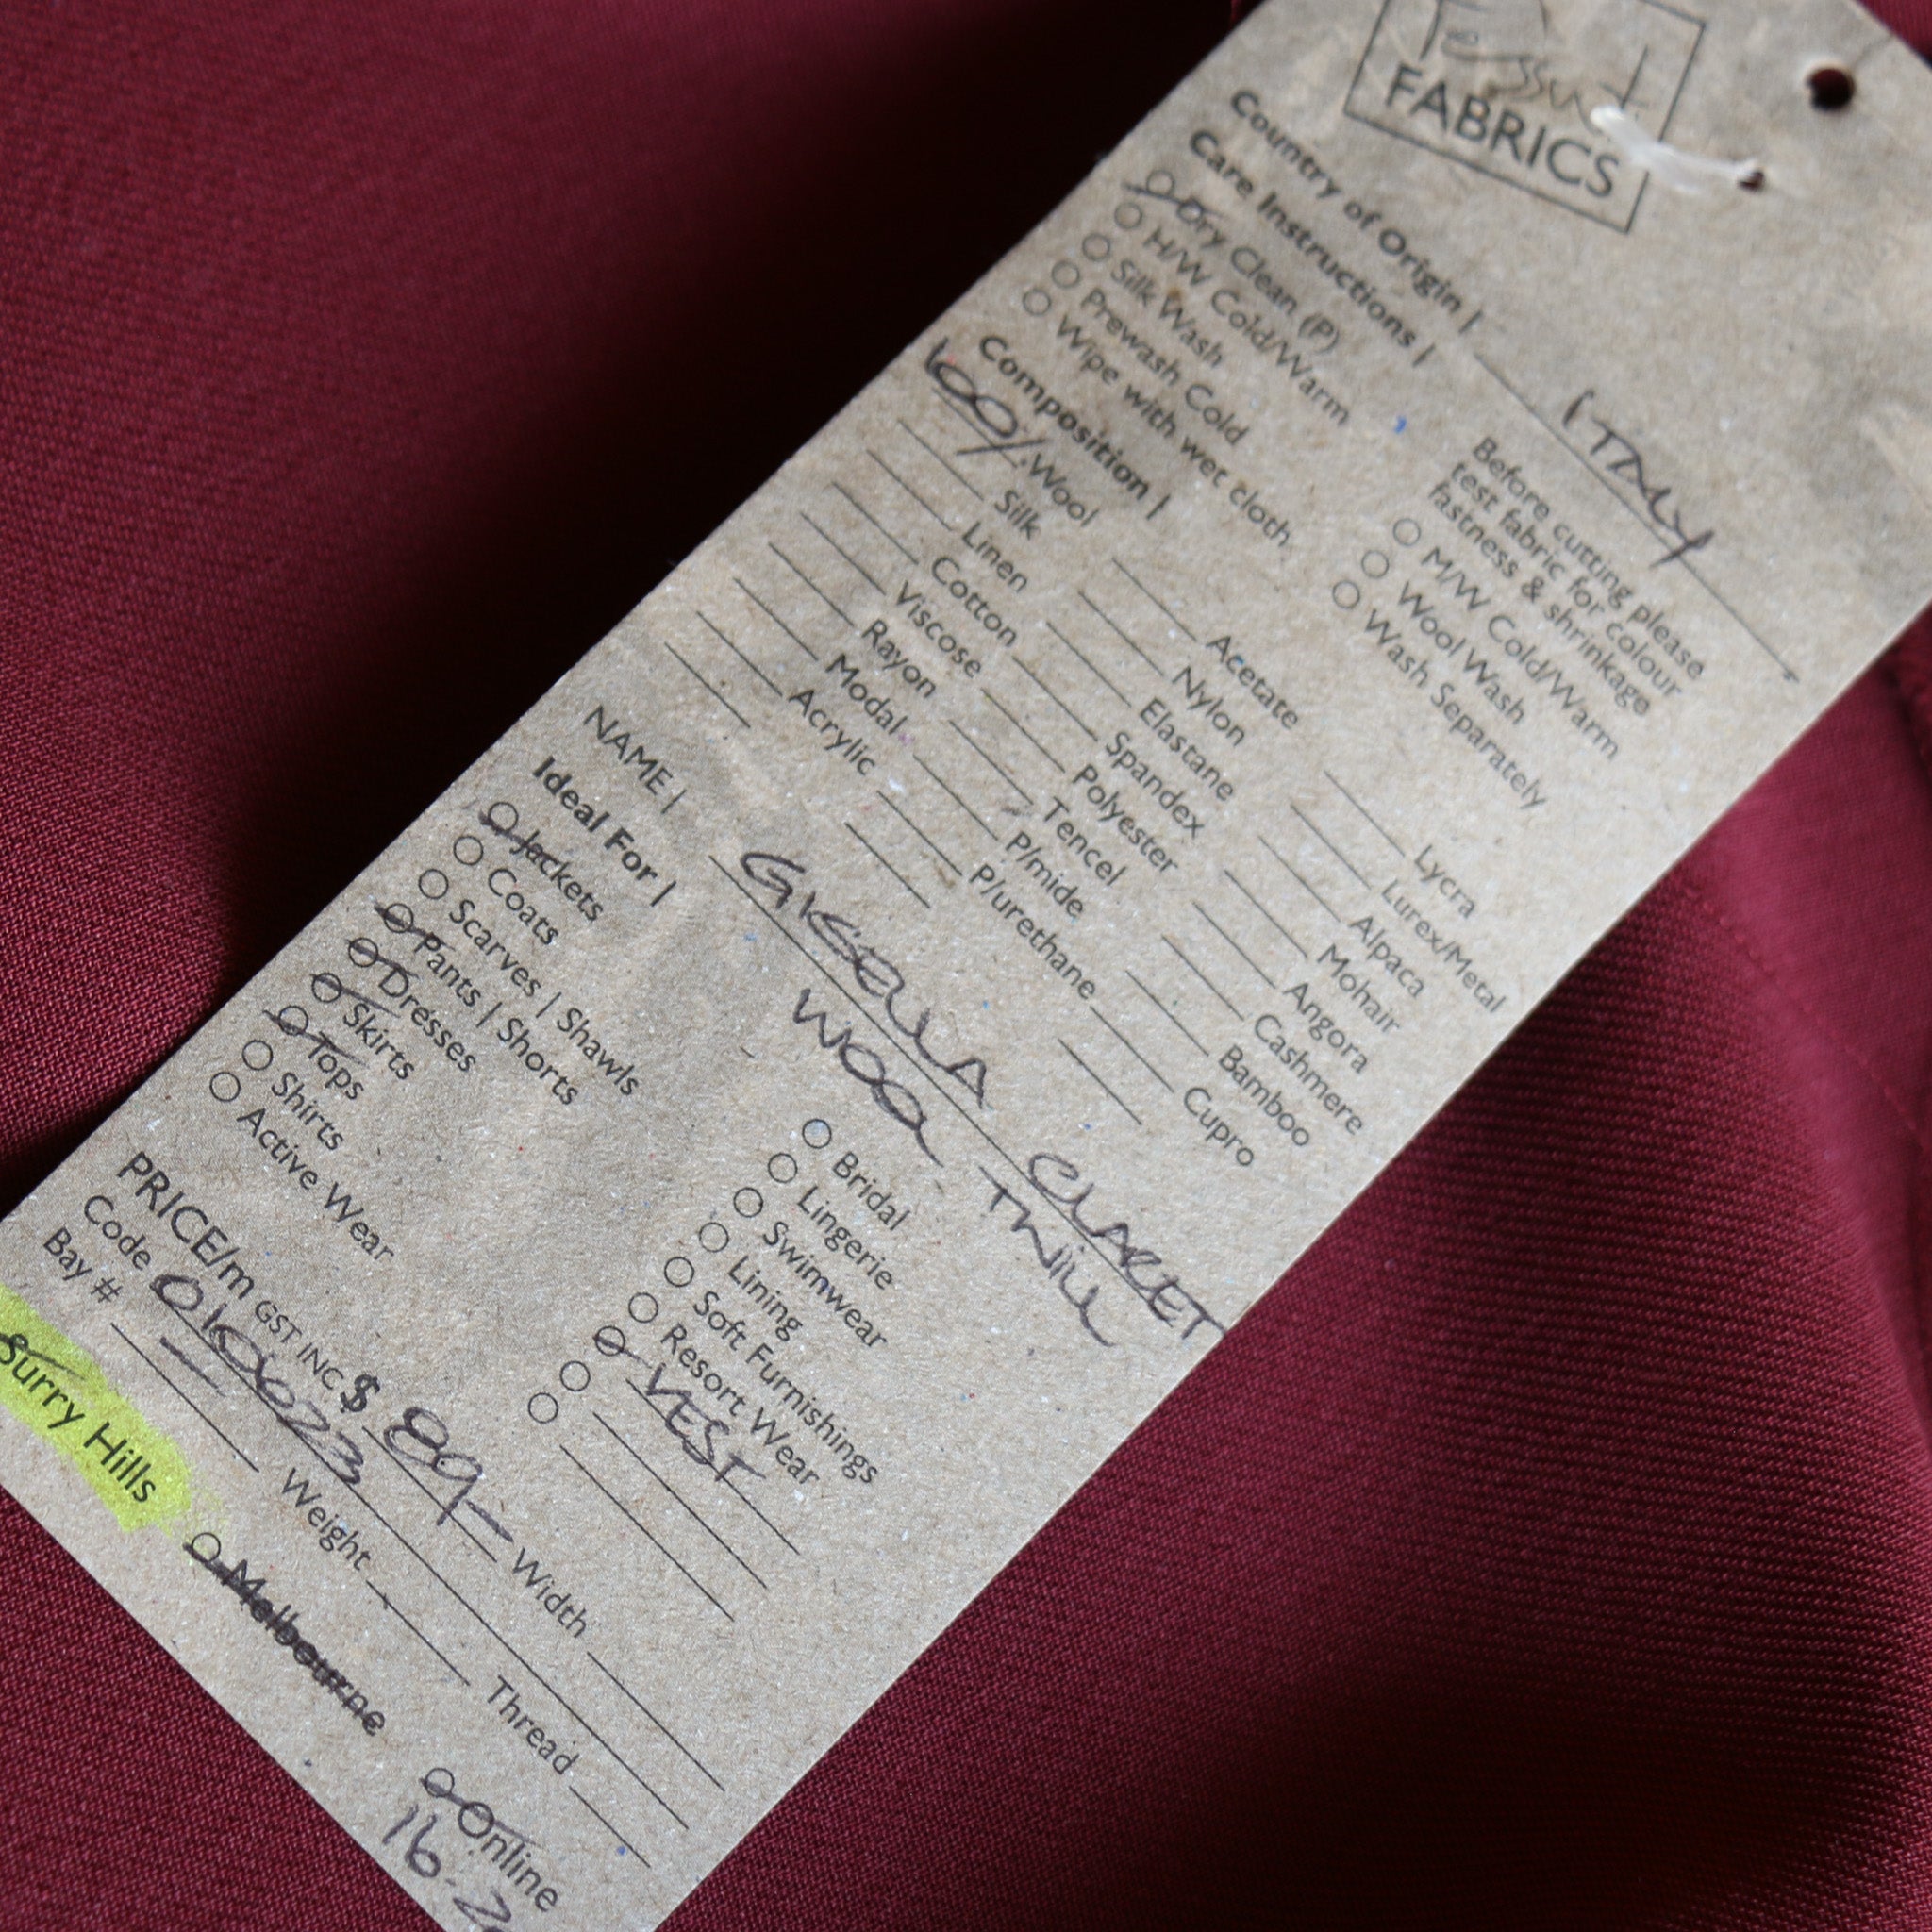 Tessuti
FABRICS
Country of Origin | ITALY
Care Instructions |
Dry Clean (P)
H/W Cold/Warm
Silk Wash
Prewash Cold
Wipe with wet cloth
Before cutting please
test fabric for colour
fastness & shrinkage
M/W Cold/Warm
Wool Wash
Wash Separately
Composition |
100% Wool
Silk
Linen
Cotton
Viscose
Rayon
Modal
Acrylic
Acetate
Nylon
Elastane
Spandex
Polyester
Tencel
P/mide
P/urethane
Lycra
Lurex/Metal
Alpaca
Mohair
Angora
Cashmere
Bamboo
Cupro
NAME | GISELLA CLARET
WOOL TWILL
Ideal For |
Jackets
Coats
Scarves | Shawls
Pants | Shorts
Dresses
Skirts
Tops
Shirts
Active Wear
Bridal
Lingerie
Swimwear
Lining
Soft Furnishings
Resort Wear
VEST
PRICE/m GST INC $ 89- Width
Code 010023
Bay # Weight Thread
Surry Hills Melbourne Online